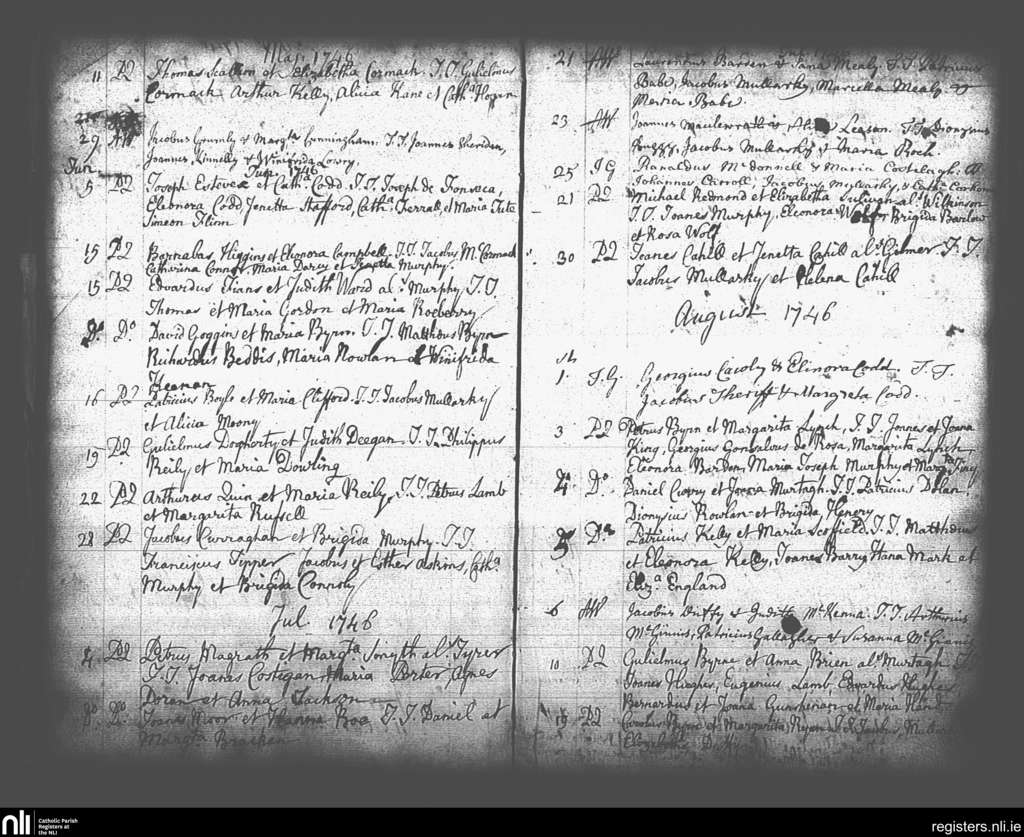 Maij. 1746
11 P2 Thomas Scallion et Elizabetha Cormack. T.T. Gulielmus
Cormack Arthur Kelly, Alicia Kane et Cath.a Hogan
29 AW Jacobus Grumly & Marg.ta Cunningham. T.T. Joannes Sheridan,
Joannes Linnelly & Winifrida Lowry.
Jun. Jun. 1746
5 P2 Joseph Esteves et Cath.a Codd. T.T. Joseph de Fonseca,
Eleonora Codd Jenetta Stafford, Cath.a Ferrall, et Maria Tute
Simeon Flinn
15 P2 Barnabas Higgins et Elionora Campbell. T.T. Jacobus McCormack
Catharina Connor, Maria Darcy et Jenetta Murphy.
15 P2 Edvardus Evans et Judith Ward al.s Murphy, T.T.
Thomas et Maria Gordon et Maria Roeberry
D.o D.o David Goggin et Maria Byrn. T.T. Matthaus Byrn
Richardus Beddis, Maria Nowlan et Winifreda
Heenan
16 P2 Patricius Boyle et Maria Clifford. T.T. Jacobus Mullarky
et Alicia Moony
19 P2 Gulielmus Doghority et Judith Deegan. T.T. Philippus
Reily et Maria Dowling
22 P2 Arthurus Quin et Maria Reily, T.T. Petrus Lamb
et Margarita Russell
28 P2 Jacobus Curraghan et Brigida Murphy. T.T.
Franciscus Tipper Jacobus et Esther Askins, Cath.a
Murphy et Brigida Connoly
Jul. 1746
4 P2 Petrus Magrath et Marg.ta Smyth al.s Tyrer
T.T. Joanes Costigan, Maria Porter Agnes
Doran et Anna Jackson
D.o D.o Joanes Moor et Hanna Roe T.T. Daniel et
Marg.ta Bracken
21 AW Laurentius Barden & Jana Mealy T.T. Patricius
Babe, Jacobus Mullarky, Mariella Mealy &
Merica Babe
23 AW Joannes & Leeson. T.T. Dionysius
Jacobus Mullarky & Maria Roch.
25 J.G Ranaldus McDonnell & Maria Costelagh.
Johannes Carroll, Jacobus Mullarky, &
21 P2 Michael Redmond et Elizabetha Sulivan al.s Wilkinson
T.T. Joanes Murphy, Eleonora Wolf, Brigida Barlow
et Rosa Wolf
30 P2 Joanes Cahill et Jenetta Cahill al.s Gilmer T.T.
Jacobus Mullarky et Helena Cahill
August 1746
1.st J.G. Georgius Cavoly & Elinora Codd. T.T.
Jacobus Sheriff & Margreta Codd.
3 P2 Petrus Bynn et Margarita Lynch, T.T. Joanes et Joana
King, Georgius Gonsalvus de Rosa, Margarita Lynch
Eleonora Barden, Maria Joseph Murphy et Marg.ta Tracy
4 D.o Daniel Curry et Joana Murtagh. T.T. Patricius Dolan
Dionysius Rowlan et Brigida Henery
5 D.o Patricius Kelly et Maria Scoffield. T.T. Matthaus
et Eleonora Kelly, Joanes Barry, Hana Mark et
Eliz.a England
6 AW Jacobus Duffy & Juditha McKenna. T.T. Arthurius
McGinnis, Patricius Gallagher & Susanna McGinnis
10 P2 Gulielmus Byrne et Anna Brien al.s Murtagh T.T.
Joanes Hughes, Eugenius Lamb, Edvardus Hughes
Bernardus et Joana Gunshenan et Maria Hand
19 P2 Carolus Byrne et Margarita Ryan T.T. Jacobus
nli Catholic Parish
Registers at
the NLI
registers.nli.ie